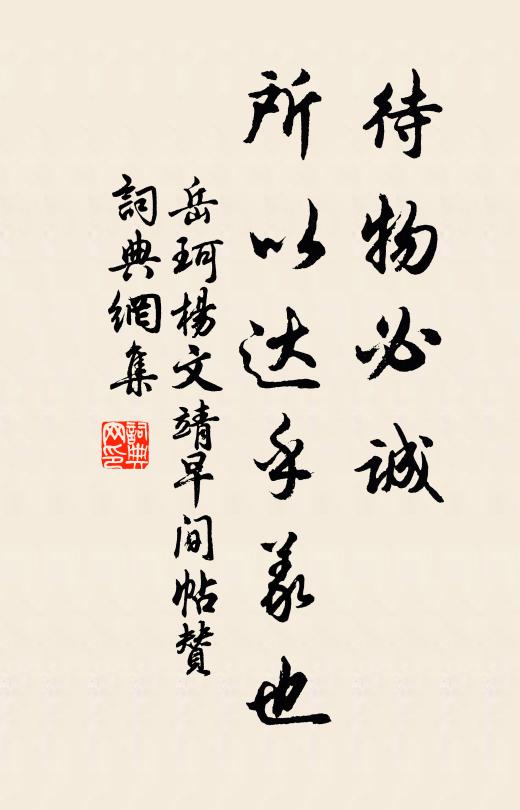 待物必诚
所以达乎义也
岳珂楊文靖早间帖贊
詞典網集
詞典
网印